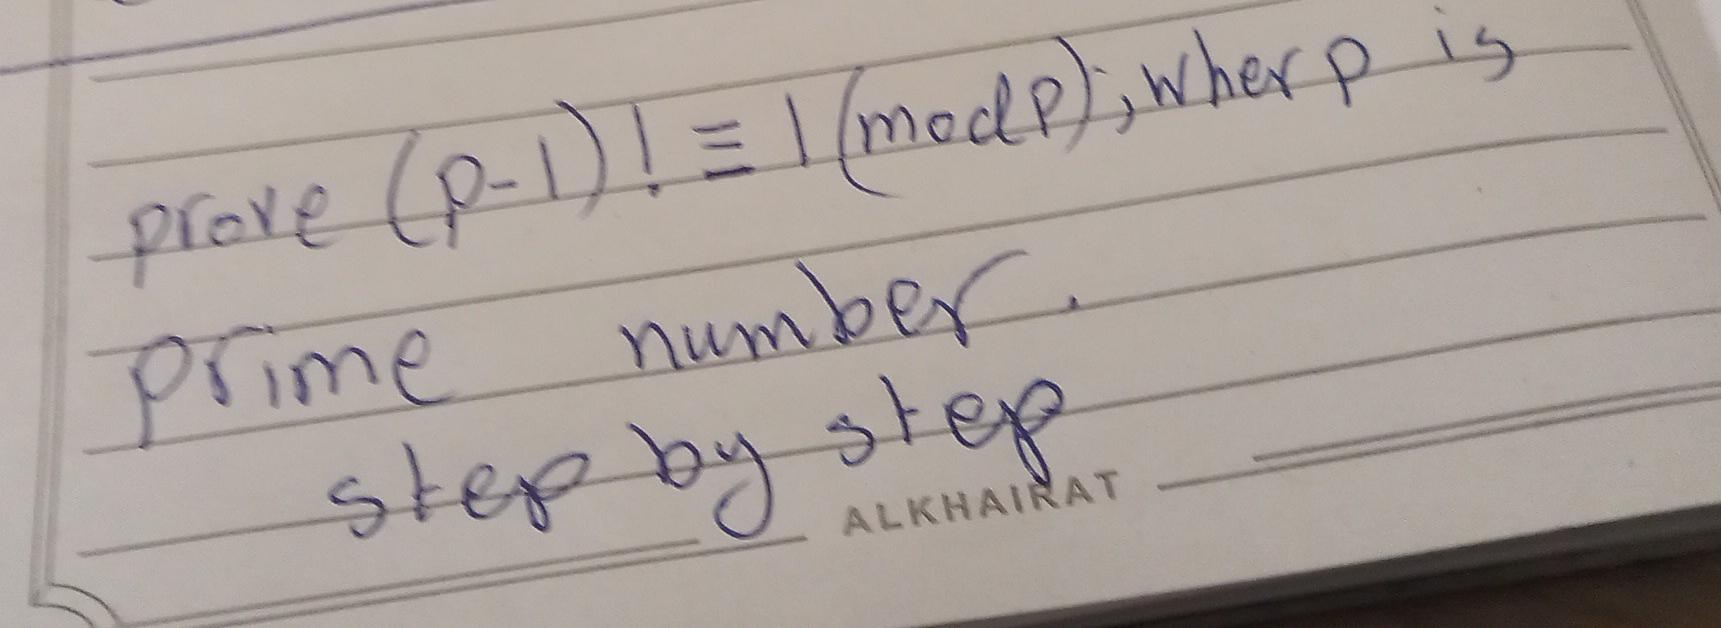 prove (p-1)! ≡ 1 (mod p); wher p is
prime number.
step by step
ALKHAIRAT